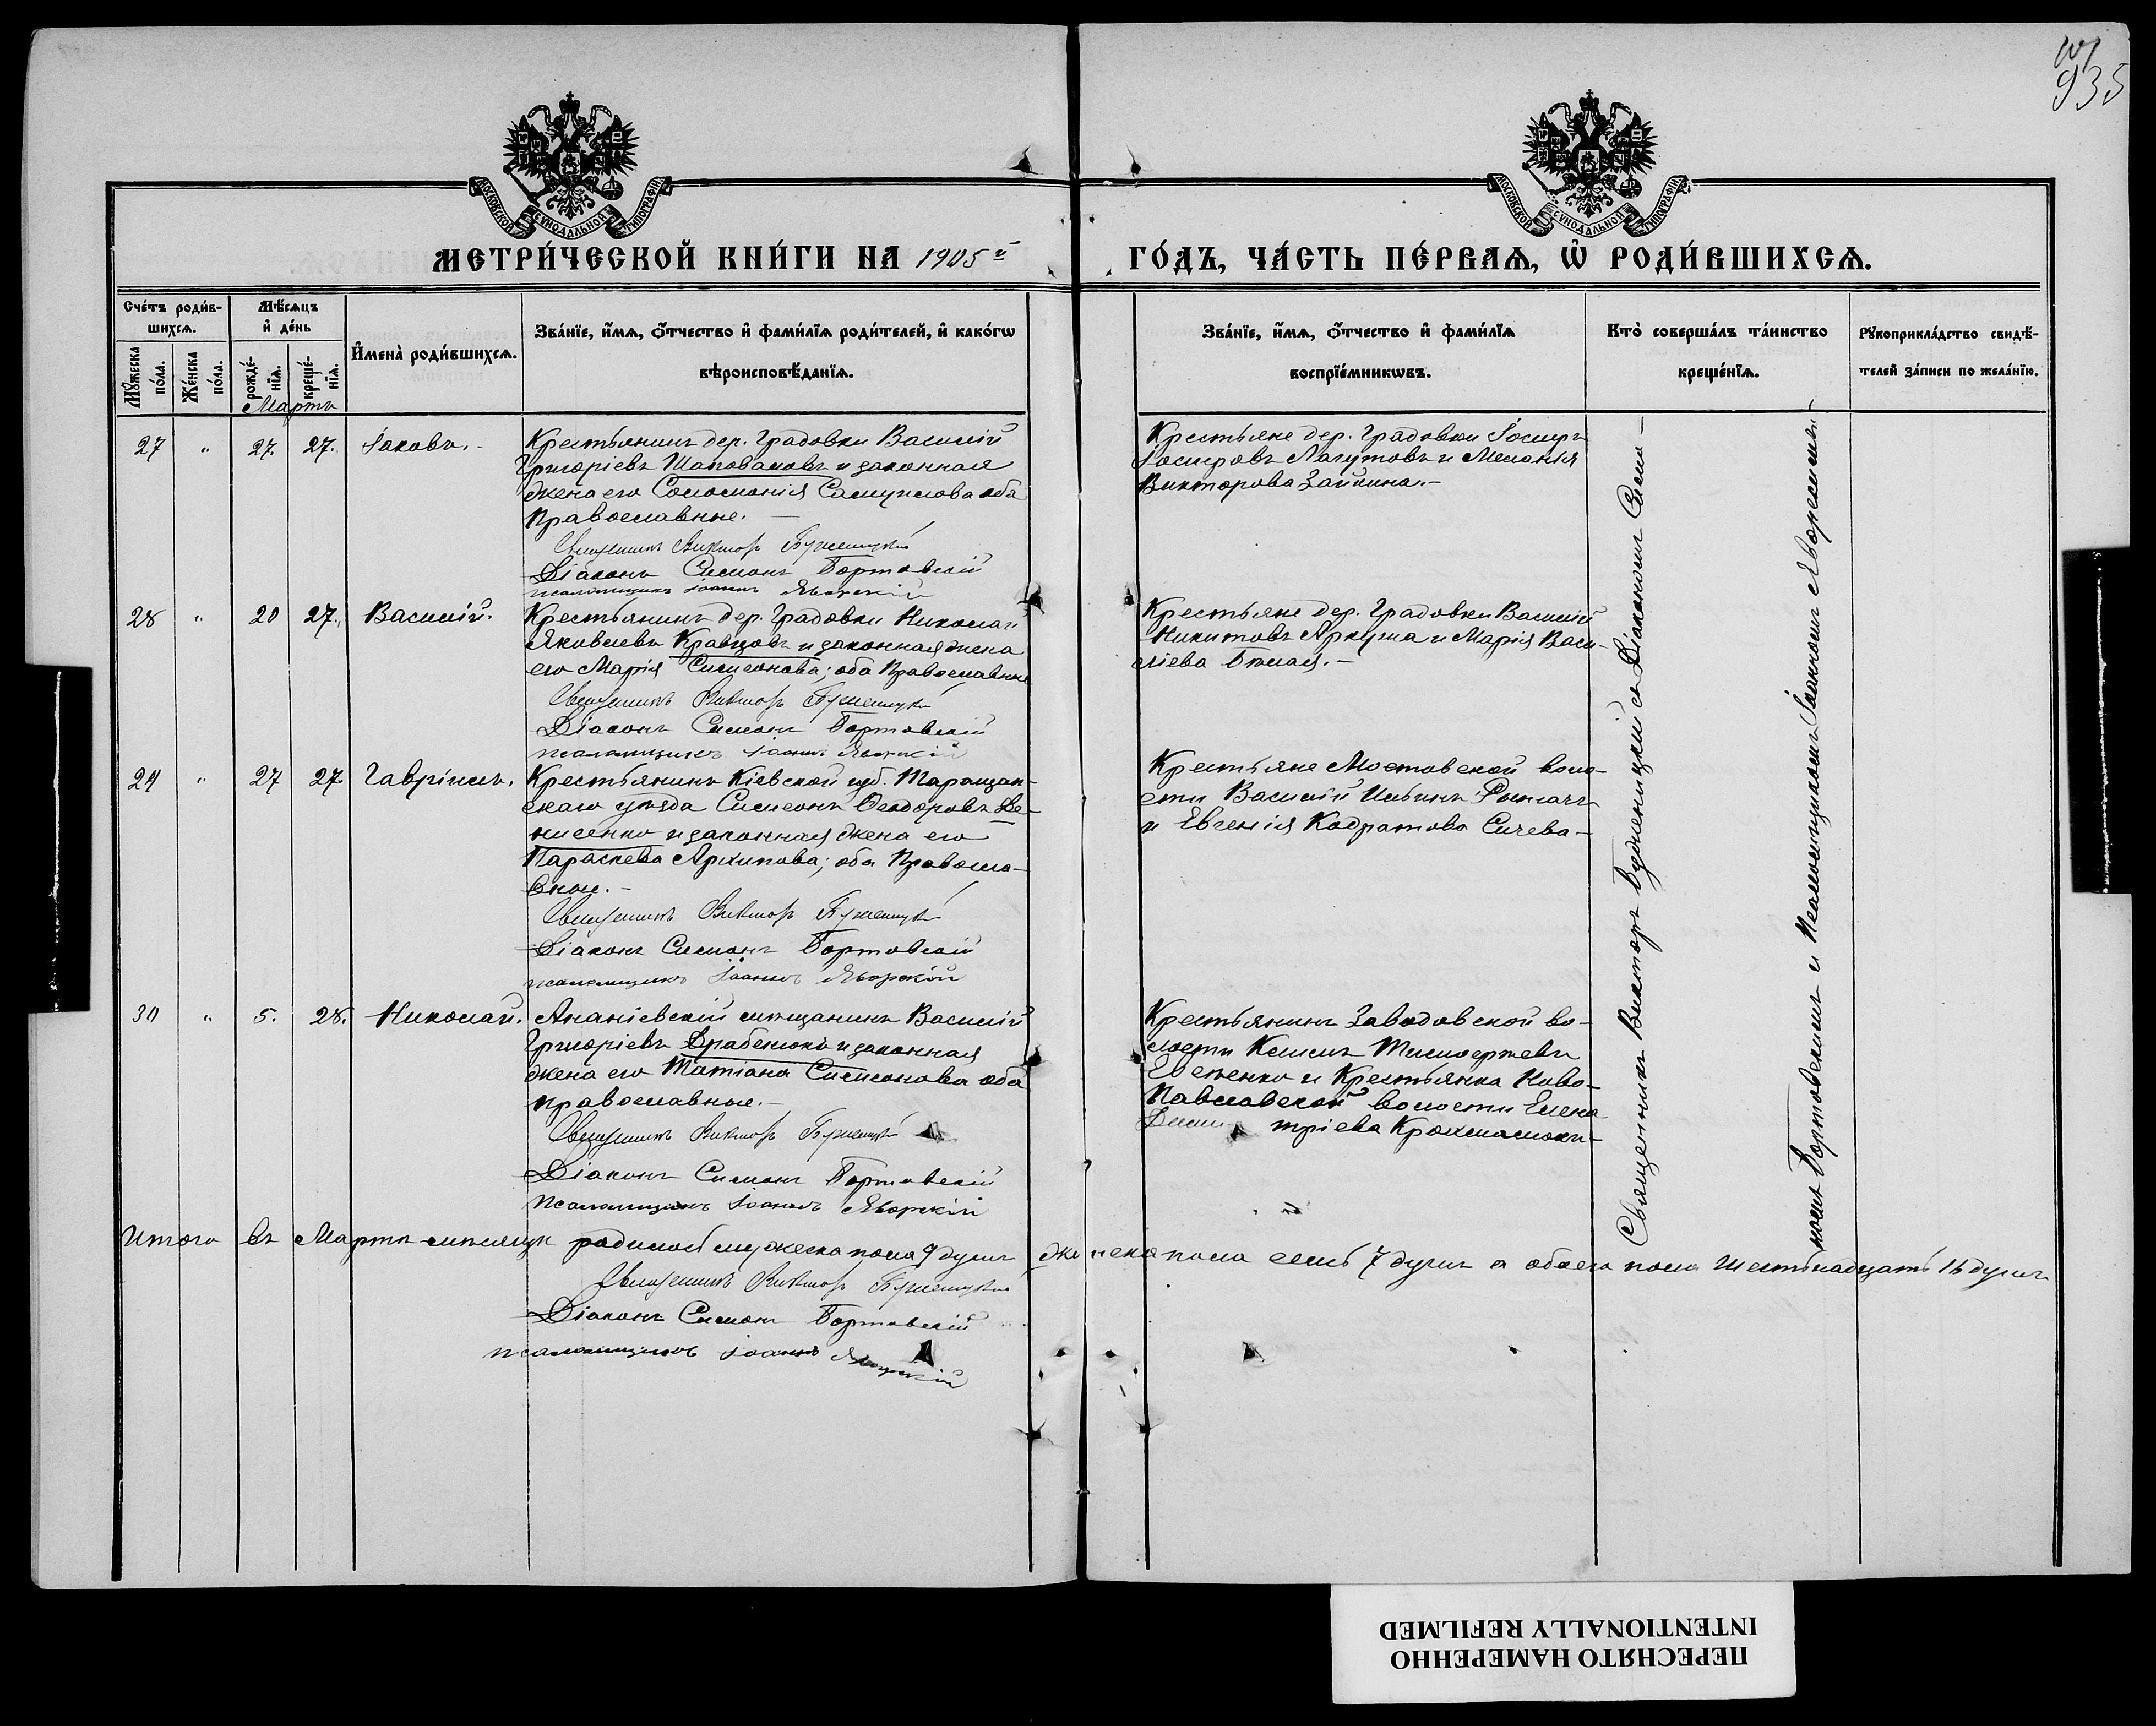 935
МОСКОВСКОЙ СѴНОДАЛЬНОЙ ТИПОГРАФІИ
МОСКОВСКОЙ СѴНОДАЛЬНОЙ ТИПОГРАФІИ
МЕТРИ́ЧЕСКОЙ КНИ́ГИ НА 1905й
ГО́ДЪ, ЧА́СТЬ ПЕ́РВАѦ, Ѡ҆ РОДИ́ВШИХСѦ.
Сче́тъ роди́в-
шихсѧ.
Мꙋжеска по́ла.
Же́нска по́ла.
Мѣ́сѧцъ
и҆ де́нь
рожде́-
нїѧ.
креще́-
нїѧ.
И҆мена̀ роди́вшихсѧ.
Зва́нїе, и҆́мѧ, ѻ҆́тчество и҆ фами́лїѧ роди́телей, и҆ како́гѡ
вѣроисповѣ́данїѧ.
Зва́нїе, и҆́мѧ, ѻ҆́тчество и҆ фами́лїѧ
воспрїе́мникѡвъ.
Кто̀ соверша́лъ та́инство
креще́нїѧ.
Рꙋкоприкла́дство свидѣ́-
телей за́писи по жела́нїю.
Мартъ
27 " 27. 27. Іаковъ.-
Крестьянинъ дер. Градовки Василій
Григоріевъ Шаповаловъ и законная
жена его Соломонія Самуилова оба
Православные. —
Священникъ Викторъ
Діаконъ Симонъ Бортовскій
псаломщикъ Іоаннъ Яворскій
Крестьяне дер. Градовки Іосифъ
Іосифовъ Лагутовъ и Меланія
Викторова Зайкина.-
28 " 20 27. Василій.
Крестьянинъ дер. Градовки Николай
Яковлевъ Кравцовъ и законная жена
его Марія Симеонова; оба Православные
Священникъ Викторъ
Діаконъ Симонъ Бортовскій
псаломщикъ Іоаннъ Яворскій
Крестьяне дер. Градовки Василій
Никитовъ Аркуша и Марія Васи-
ліева Бѣлая.-
29 " 27 27 Гавріилъ.
Крестьянинъ Кіевской губ. Таращан-
скаго уѣзда Симеонъ Ѳеодоровъ Де-
нисенко и законная жена его
Параскева Архипова; оба Правосла-
вные.-
Священникъ Викторъ
Діаконъ Симонъ Бортовскій
псаломщикъ Іоаннъ Яворскій
Крестьяне Мостовской воло-
сти Василій Ильинъ
и Евгенія Кодратова Сичева-
30 " 5. 28. Николай.
Ананіевскій мѣщанинъ Василій
Григоріевъ Драбенюкъ и законная
жена его Татіана Симеонова оба
православные.-
Священникъ Викторъ
Діаконъ Симонъ Бортовскій
Псаломщикъ Іоаннъ Яворскій
Крестьянинъ Заводовской во-
лости
и Крестьянка Ново-
Павловской волости Елена
Димитріева
Священникъ Викторъ со Діакономъ Симо-
номъ Бортовскимъ и Псаломщикомъ Іоанномъ Яворскимъ
Итого въ Мартѣ мѣсяцѣ родилось мужеска пола 9 душъ женска пола семь 7 душъ а обоего пола Шестьнадцать 16 душъ
Священникъ Викторъ
Діаконъ Симонъ Бортовскій
псаломщикъ Іоаннъ Яворскій
ПЕРЕСНЯТО НАМЕРЕННО
INTENTIONALLY REFILMED